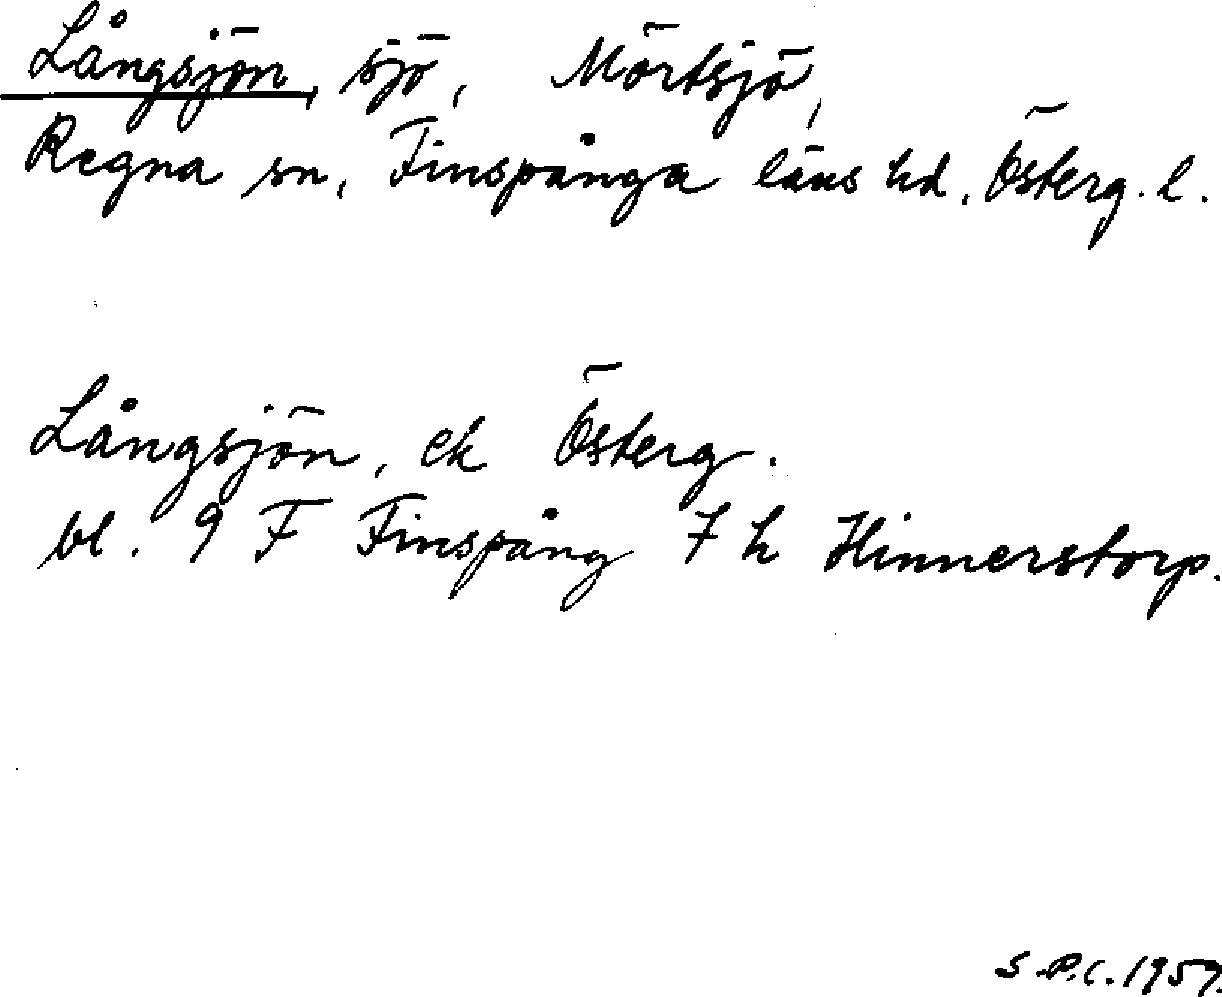 Långsjön, sjö, Mörtsjö,
Regna sn, Finspånga läns hd, Österg. l.
Långsjön, ek Österg.
bl. 9 F Finspång 7 h Hinnerstorp.
S.P.C. 1957.